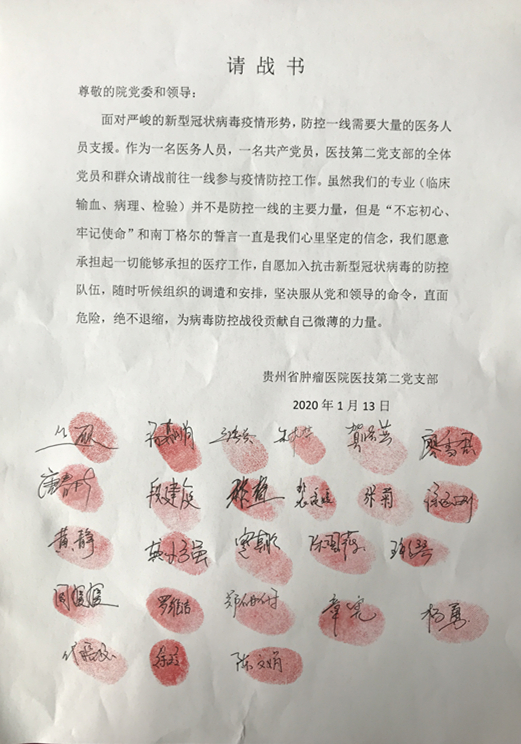 请战书
尊敬的院党委和领导：
面对严峻的新型冠状病毒疫情形势，防控一线需要大量的医务人
员支援。作为一名医务人员，一名共产党员，医技第二党支部的全体
党员和群众请战前往一线参与疫情防控工作。虽然我们的专业（临床
输血、病理、检验）并不是防控一线的主要力量，但是“不忘初心、
牢记使命”和南丁格尔的誓言一直是我们心里坚定的信念，我们愿意
承担起一切能够承担的医疗工作，自愿加入抗击新型冠状病毒的防控
队伍，随时听候组织的调遣和安排，坚决服从党和领导的命令，直面
危险，绝不退缩，为病毒防控战役贡献自己微薄的力量。
贵州省肿瘤医院医技第二党支部
2020 年 1 月 13 日
段建俊 张菊
黄静
杨勇
陈文娟